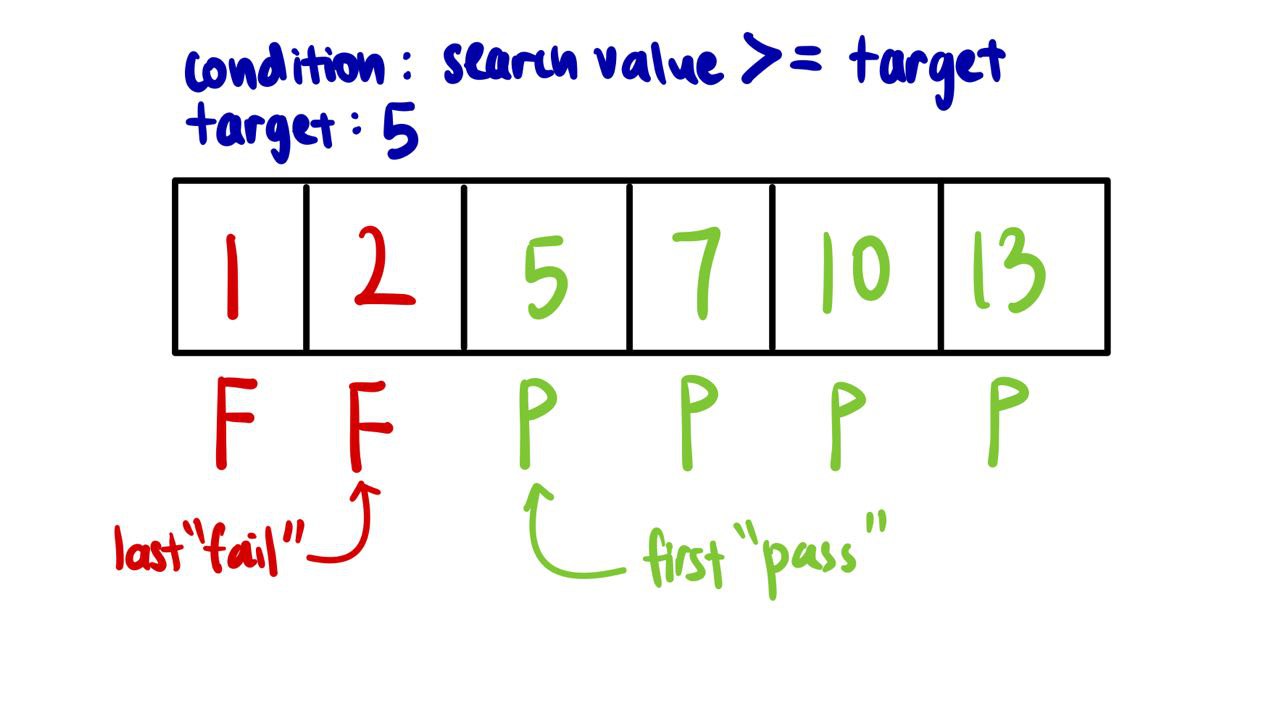 condition: search value >= target
target: 5
1 2 5 7 10 13
F F P P P P
last "fail" first "pass"